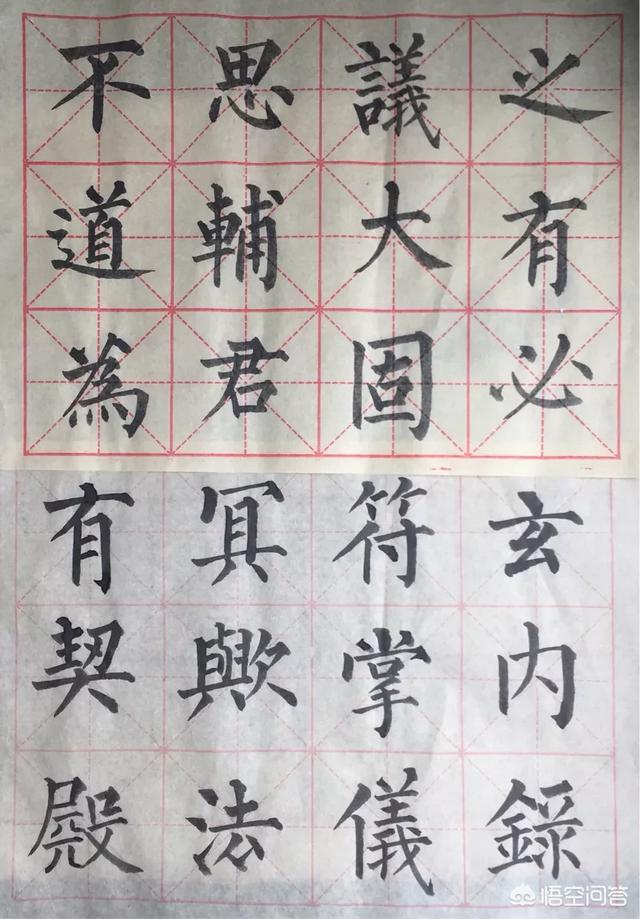 不思議之
道輔大有
為君固必
有冥符玄
契歟掌内
殿法儀錄
悟空问答